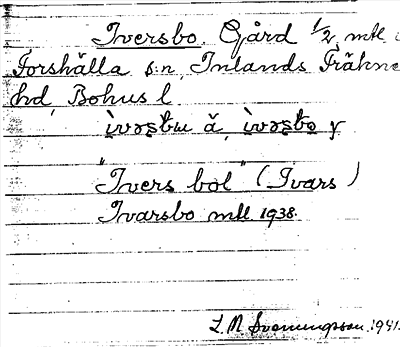 Iversbo. Gård 1/2 mtl
Forshälla s:n, Inlands Fräkne
hd, Bohus l
"Ivers bol" (Ivars)
Ivarsbo mtl 1938.
L. M. Svenungsson. 1941.